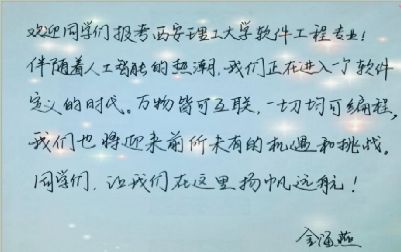 欢迎同学们报考西安理工大学软件工程专业!
伴随着人工智能的热潮,我们正在进入一个软件
定义的时代。万物皆可互联,一切均可编程,
我们也将迎来前所未有的机遇和挑战。
同学们,让我们在这里扬帆远航!
金海燕